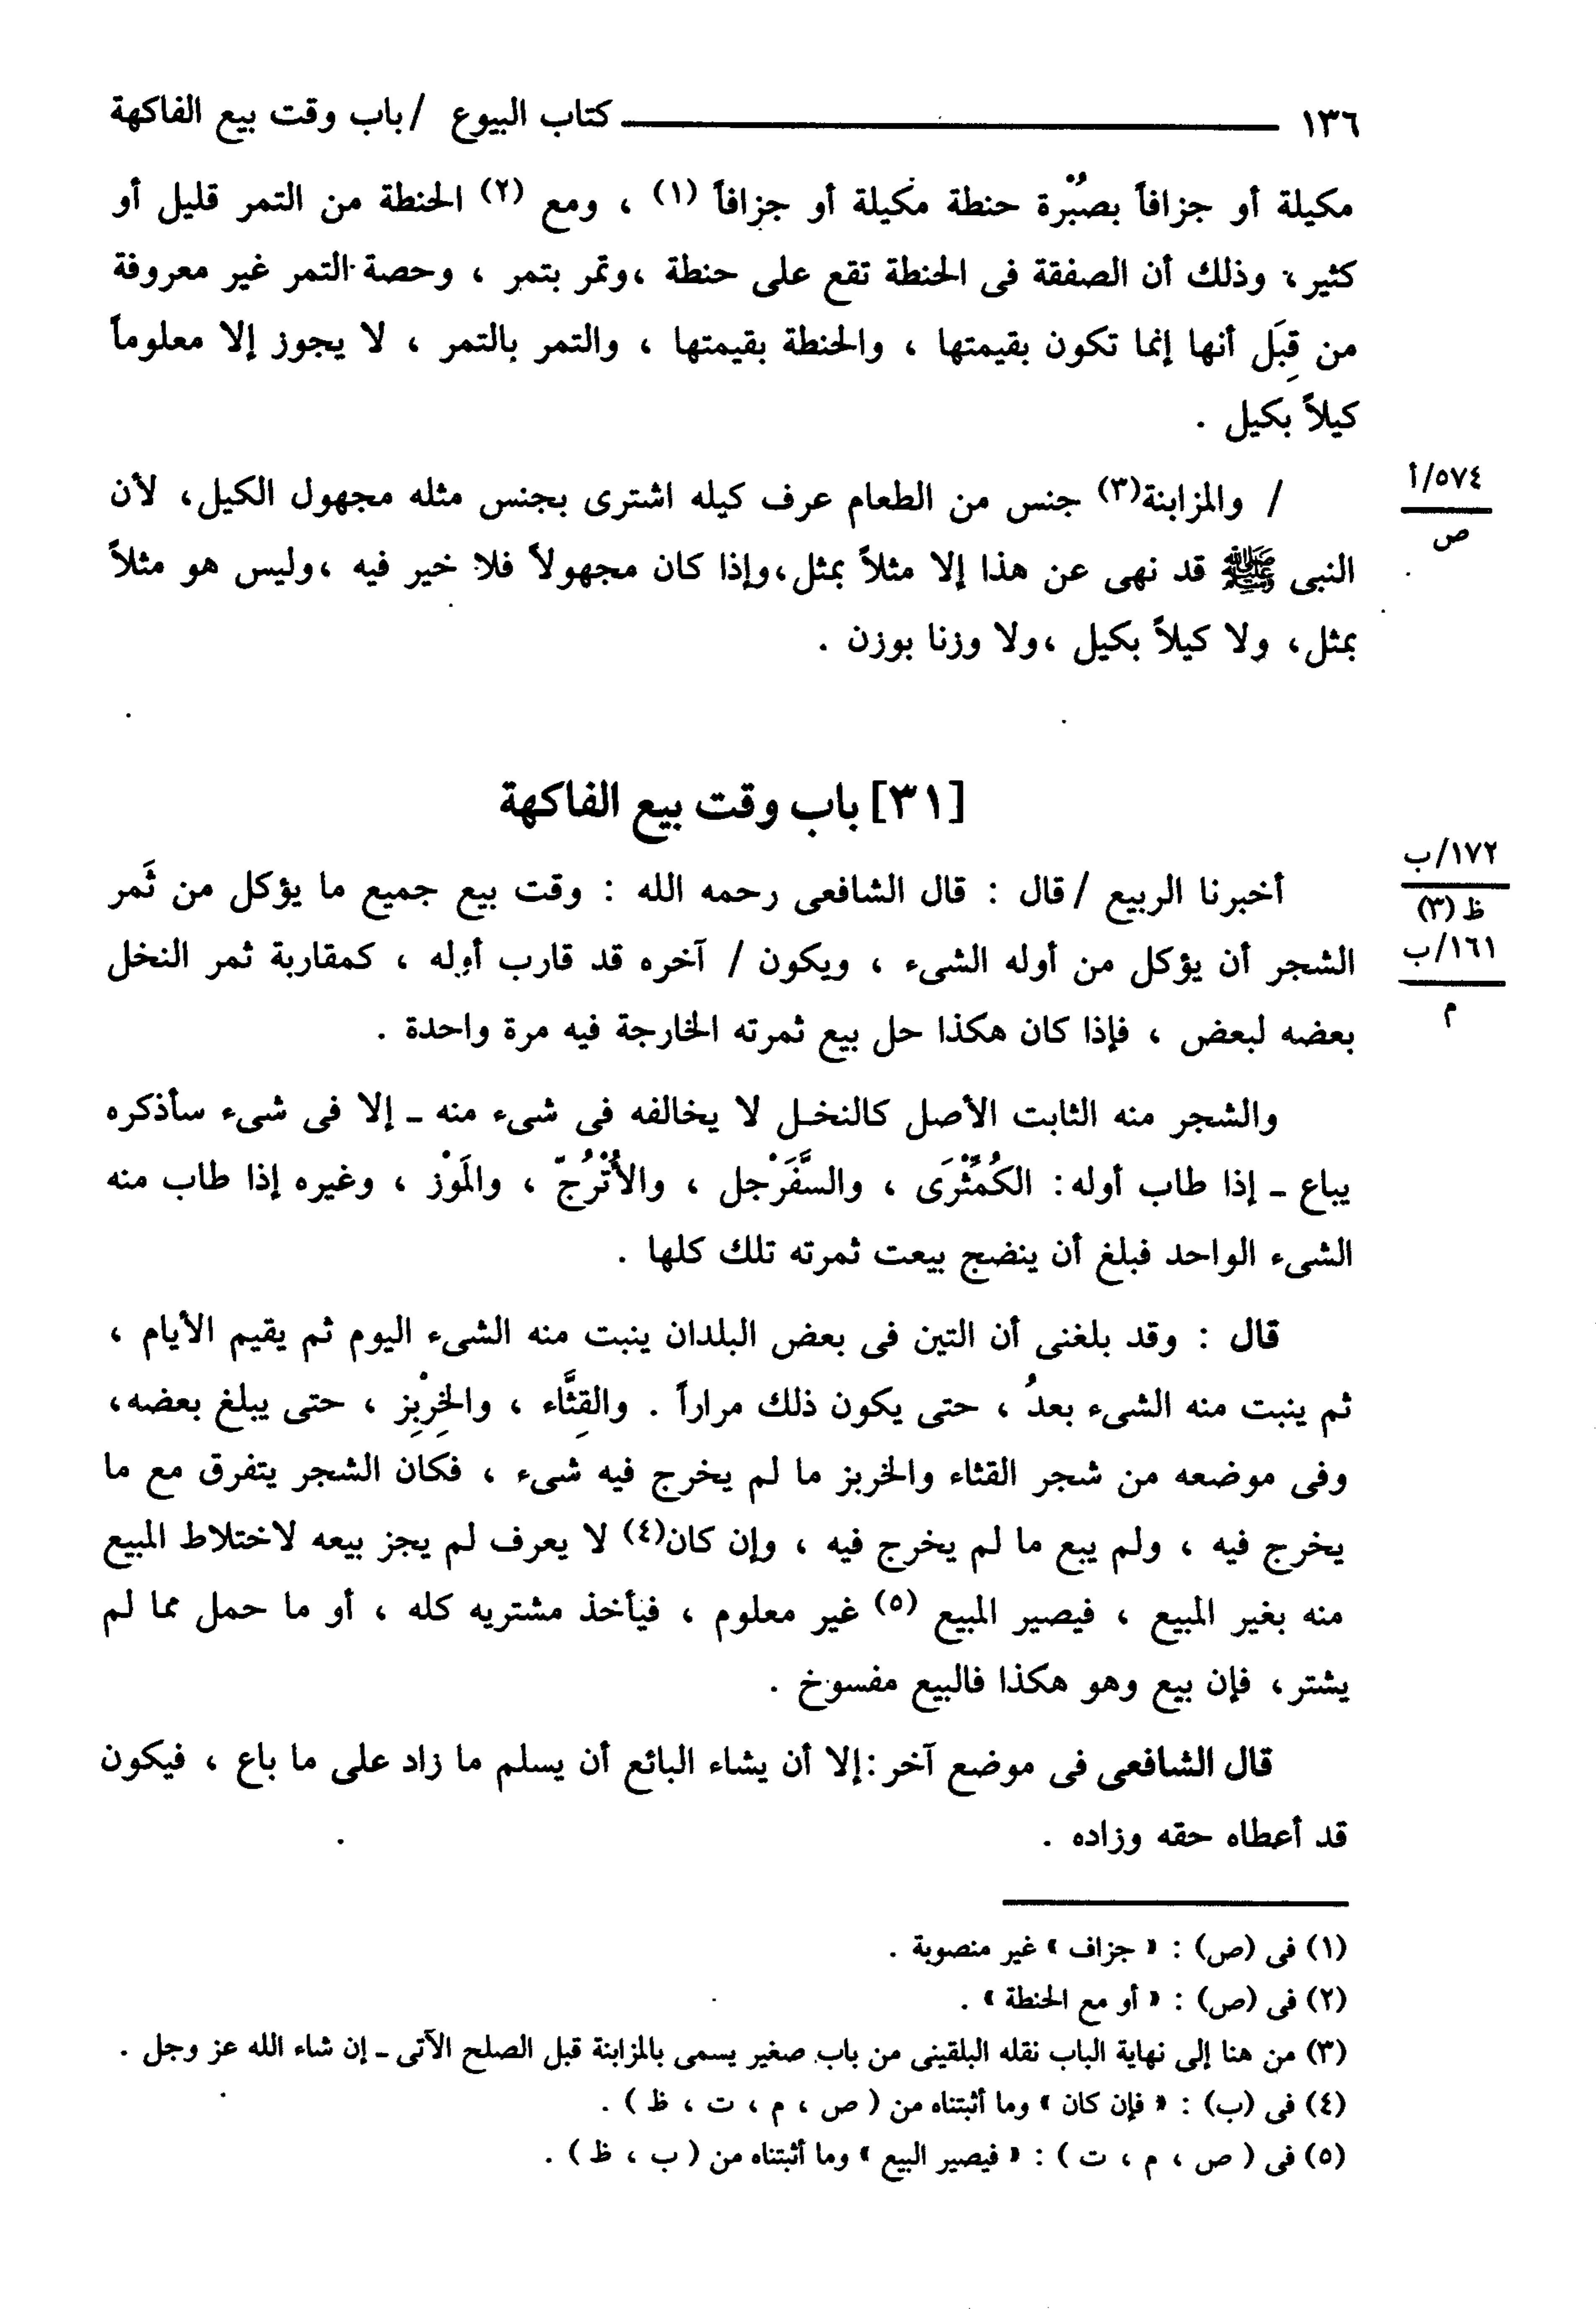 ١٣٦ كتاب البيوع / باب وقت بيع الفاكهة
مكيلة أو جزافاً بصُبْرة حنطة مكيلة أو جزافاً (١) ، ومع (٢) الحنطة من التمر قليل أو
كثير، وذلك أن الصفقة فى الحنطة تقع على حنطة ،وتمر بتمر ، وحصة التمر غير معروفة
من قِبَل أنها إنما تكون بقيمتها ، والحنطة بقيمتها ، والتمر بالتمر ، لا يجوز إلا معلوماً
كيلاً بكيل .
/ والمزابنة(٣) جنس من الطعام عرف كيله اشترى بجنس مثله مجهول الكيل، لأن
٥٧٤/أ
ص
النبى ﷺ قد نهى عن هذا إلا مثلاً بمثل،وإذا كان مجهولاً فلا خير فيه ،وليس هو مثلاً
بمثل، ولا كيلاً بكيل ،ولا وزنا بوزن .
[٣١] باب وقت بيع الفاكهة
أخبرنا الربيع / قال : قال الشافعى رحمه الله : وقت بيع جميع ما يؤكل من ثَمر
١٧٢/ب
ظ (٣)
الشجر أن يؤكل من أوله الشىء ، ويكون / آخره قد قارب أوله ، كمقاربة ثمر النخل
١٦١/ب
م
بعضه لبعض ، فإذا كان هكذا حل بيع ثمرته الخارجة فيه مرة واحدة .
والشجر منه الثابت الأصل كالنخل لا يخالفه فى شىء منه ـ إلا فى شىء سأذكره
يباع ـ إذا طاب أوله: الكُمِّثْرَى ، والسَّفَرْجل ، والأُتْرُجّ ، والمَوْز ، وغيره إذا طاب منه
الشىء الواحد فبلغ أن ينضج بيعت ثمرته تلك كلها .
قال : وقد بلغنى أن التين فى بعض البلدان ينبت منه الشىء اليوم ثم يقيم الأيام ،
ثم ينبت منه الشىء بعدُ ، حتى يكون ذلك مراراً . والقِثَّاء ، والخِرْبِز ، حتى يبلغ بعضه،
وفى موضعه من شجر القثاء والخربز ما لم يخرج فيه شىء ، فكان الشجر يتفرق مع ما
يخرج فيه ، ولم يبع ما لم يخرج فيه ، وإن كان(٤) لا يعرف لم يجز بيعه لاختلاط المبيع
منه بغير المبيع ، فيصير المبيع (٥) غير معلوم ، فيأخذ مشتريه كله ، أو ما حمل مما لم
يشتر، فإن بيع وهو هكذا فالبيع مفسوخ .
قال الشافعى فى موضع آخر :إلا أن يشاء البائع أن يسلم ما زاد على ما باع ، فيكون
قد أعطاه حقه وزاده .
(١) فى (ص) : « جزاف » غير منصوبة .
(٢) فى (ص) : « أو مع الحنطة » .
(٣) من هنا إلى نهاية الباب نقله البلقينى من باب صغير يسمى بالمزابنة قبل الصلح الآتى ـ إن شاء الله عز وجل .
(٤) فى (ب) : « فإن كان » وما أثبتناه من ( ص ، م ، ت ، ظ ) .
(٥) فى ( ص ، م ، ت ) : « فيصير البيع » وما أثبتناه من ( ب ، ظ ) .